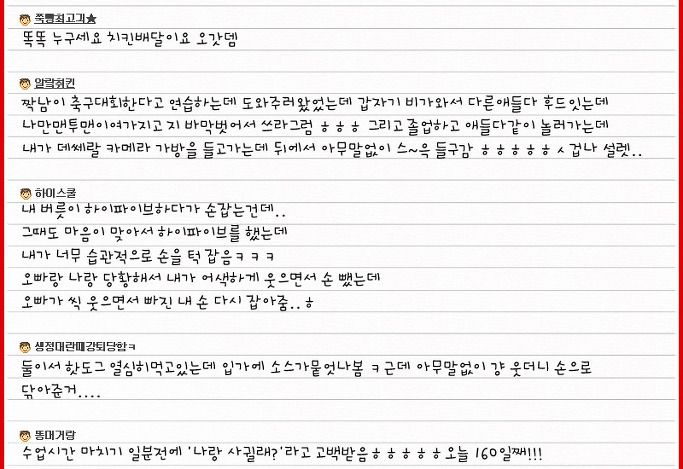 쭉빵최고긔★
똑똑 누구세요 치킨배달이요 오갓뎀
알랔췤킨
짝남이 축구대회한다고 연습하는데 도와주러왔었는데 갑자기 비가와서 다른애들다 후드잇는데
나만맨투맨이여가지고 지 바막벗어서 쓰라그럼 ㅎㅎㅎ 그리고 졸업하고 애들다같이 놀러가는데
내가 데쎄랄 카메라 가방을 들고가는데 뒤에서 아무말없이 스~윽 들구감 ㅎㅎㅎㅎㅎㅅ겁나 설렛..
하이스쿨
내 버릇이 하이파이브하다가 손잡는건데..
그때도 마음이 맞아서 하이파이브를 했는데
내가 너무 습관적으로 손을 턱 잡음ㅋㅋㅋ
오빠랑 나랑 당황해서 내가 어색하게 웃으면서 손 뺐는데
오빠가 씩 웃으면서 빠진 내 손 다시 잡아줌..ㅎ
생정대란때강퇴당함ㅋ
둘이서 핫도그 열심히먹고있는데 입가에 소스가뭍엇나봄 ㅋ근데 아무말없이 걍 웃더니 손으로
닦아준거....
똥머거랑
수업시간 마치기 일분전에 '나랑 사귈래?'라고 고백받음ㅎㅎㅎㅎㅎ오늘 160일째!!!